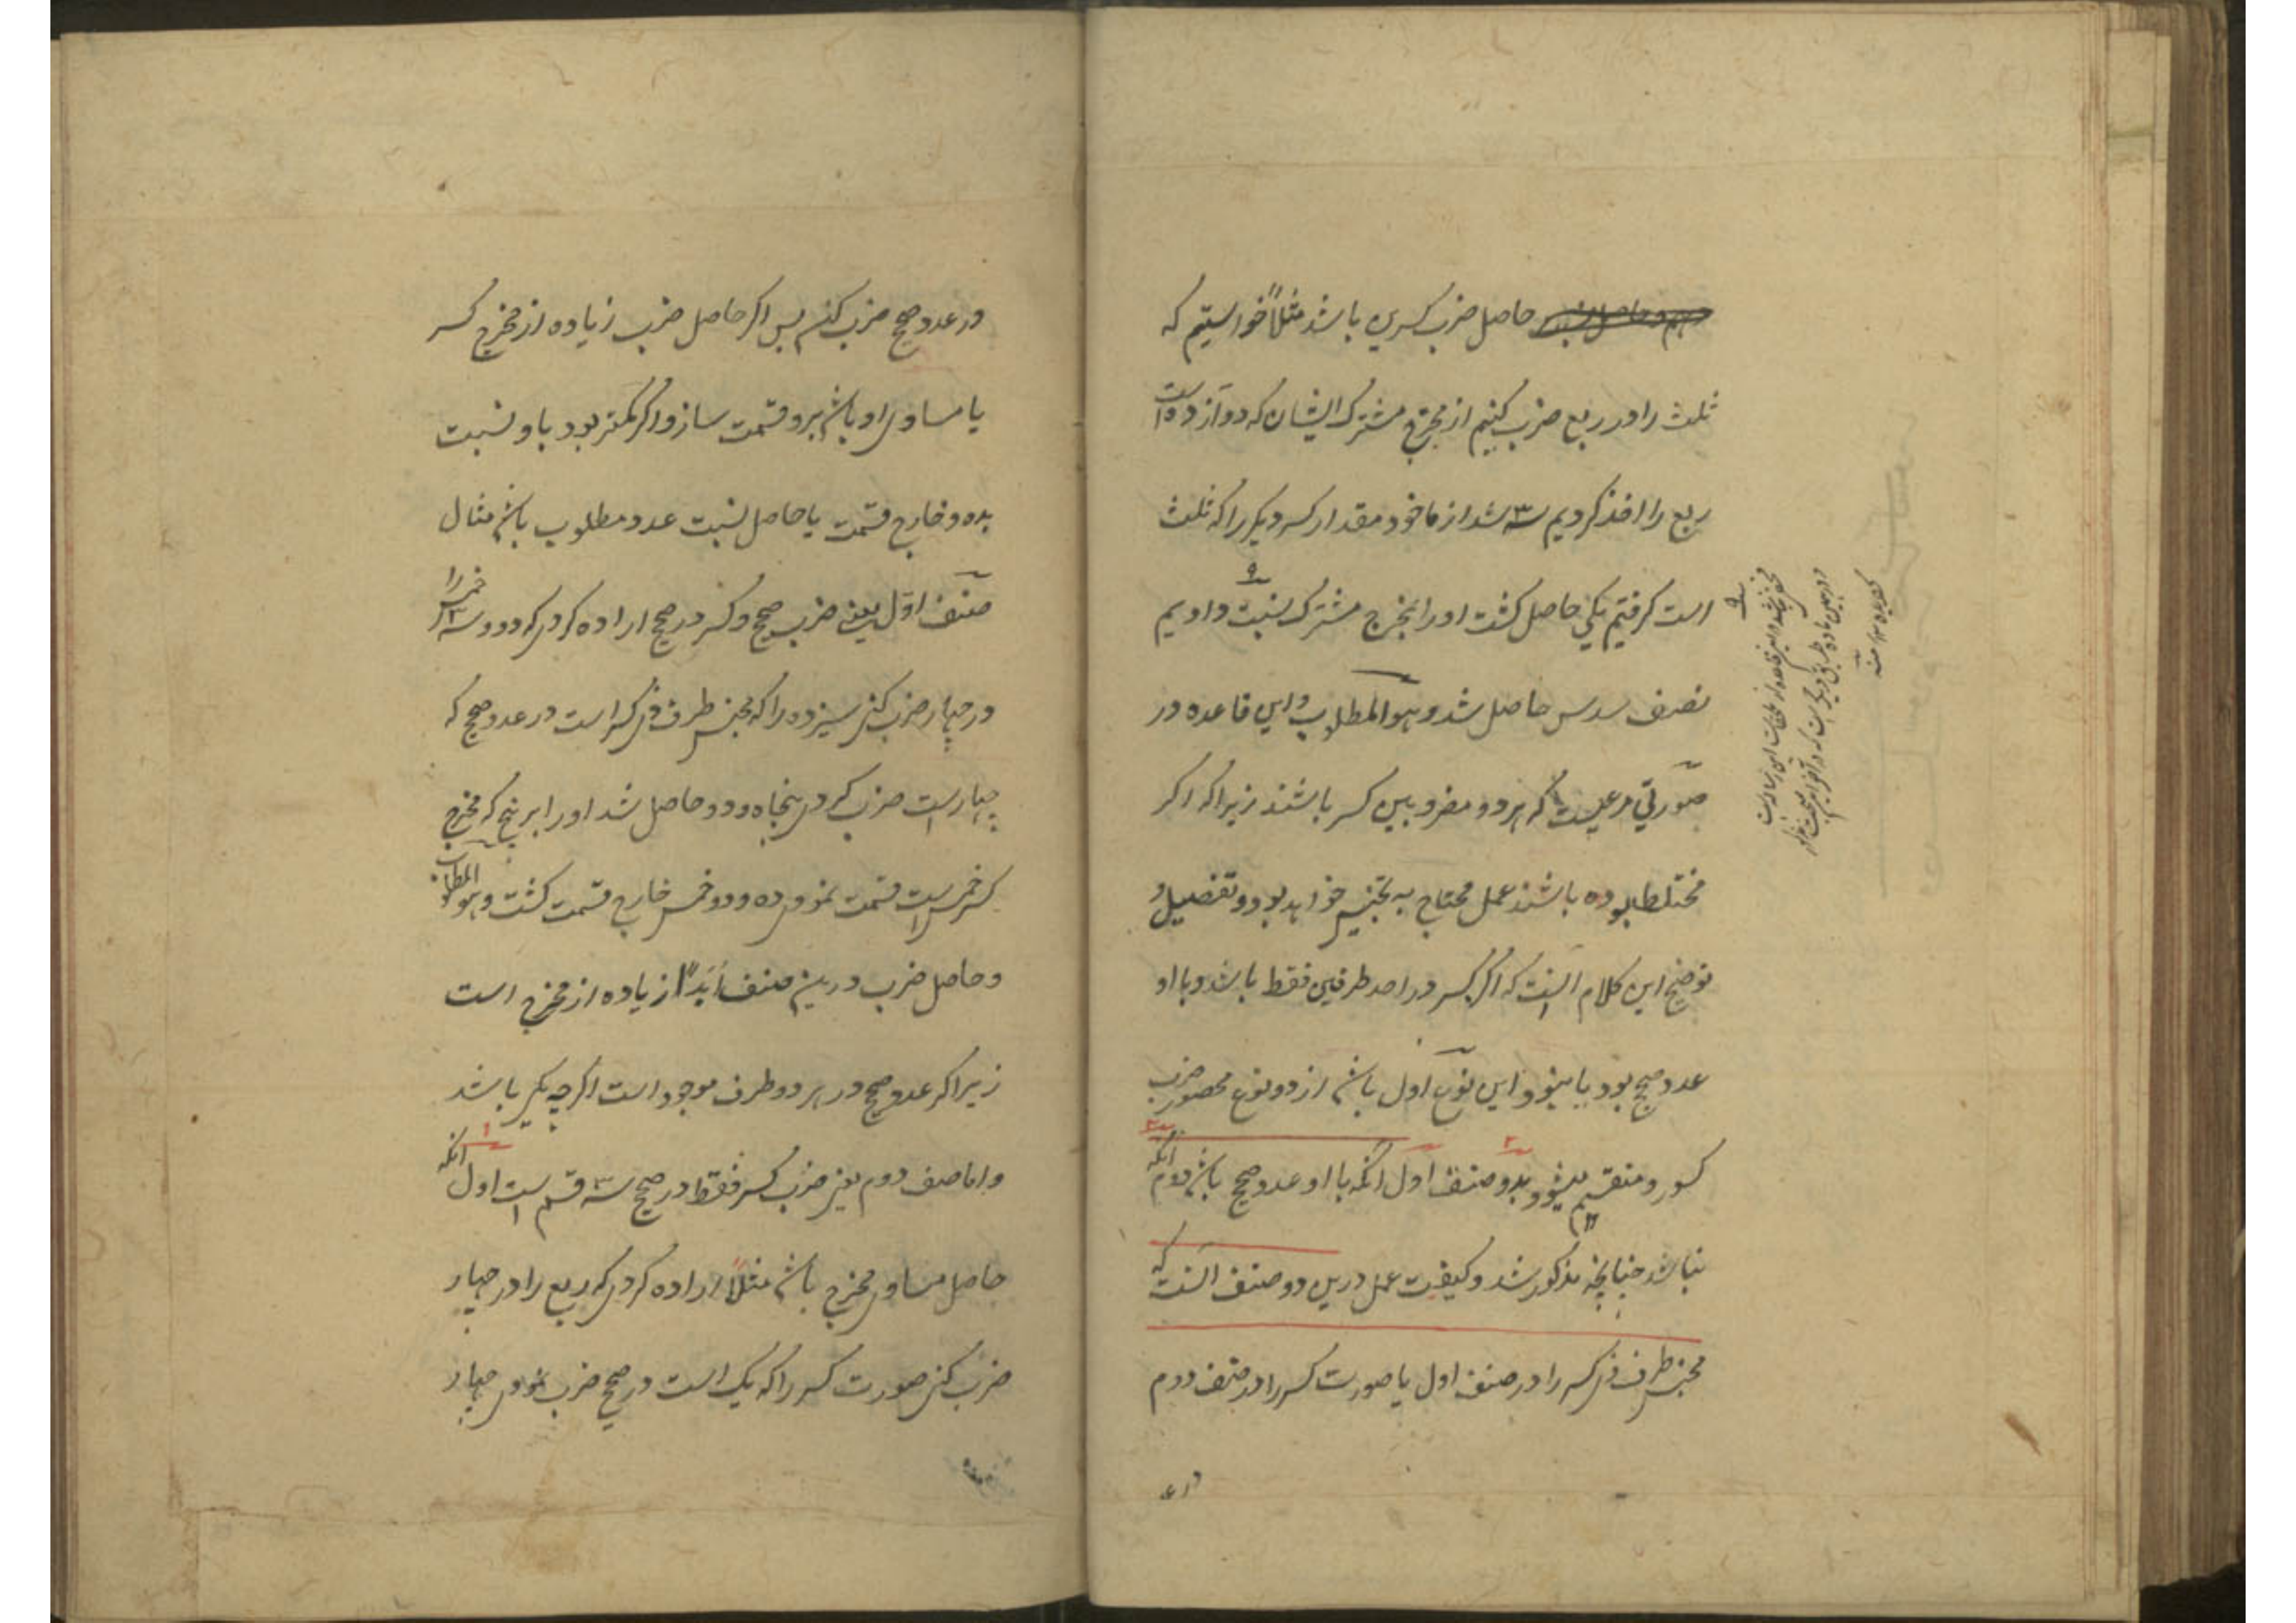 حاصل ضرب کسرین باشد مثلاً خواستیم که
ثلث را در ربع ضرب کنیم از مخرج مشترک ایشان که دوازده است
ربع را اخذ کردیم سه شد از ماخوذ مقدار کسر دیگر را که ثلث
است گرفتیم یکی حاصل گشت او را بمخرج مشترک نسبت دادیم
نصف سدس حاصل شد و هو المطلوب و این قاعده در
صورتی مرعیست که هر دو مضروبین کسر باشند زیرا که اگر
مختلط بوده باشند عمل محتاج به تجنیس خواهد بود و تفصیل و
توضیح این کلام آنست که اگر کسر در احد طرفین فقط باشد و با او
عدد صحیح بود یا نبود این نوع اول باشد از دو نوع محصور ضرب
کسور و منقسم میشود بدو صنف اول آنکه با او عدد صحیح باشد دوم آنکه
نباشد چنانچه مذکور شد و کیفیت عمل درین دو صنف آنست که
مجنس طرف ذی کسر را در صنف اول یا صورت کسر را در صنف دوم
در عدد صحیح ضرب کنم پس اگر حاصل ضرب زیاده از مخرج کسر
یا مساوی او باشد برو قسمت ساز و اگر کمتر بود باو نسبت
بده و خارج قسمت یا حاصل نسبت عدد مطلوب باشد مثال
صنف اول یعنی ضرب صحیح و کسر در صحیح اراده کردی که دو و سه خمس را
در چهار ضرب کنی سیزده را که مجنس طرف ذی کسر است در عدد صحیح که
چهار است ضرب کردی پنجاه و دو حاصل شد او را بر پنج که مخرج
کسر خمس است قسمت نمودی ده و دو خمس خارج قسمت گشت و هو المطلوب
و حاصل ضرب درین صنف ابداً زیاده از مخرج است
زیرا که عدد صحیح در هر دو طرف موجود است اگرچه یکی باشد
و اما صنف دوم یعنی ضرب کسر فقط در صحیح سه قسم است اول آنکه
حاصل مساوی مخرج باشد مثلاً اراده کردی که ربع را در چهار
ضرب کنی صورت کسر را که یک است در صحیح ضرب نمودی چهار